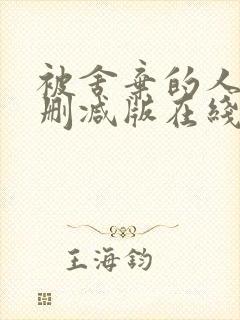 被舍弃的人
删减版在线
王海钧